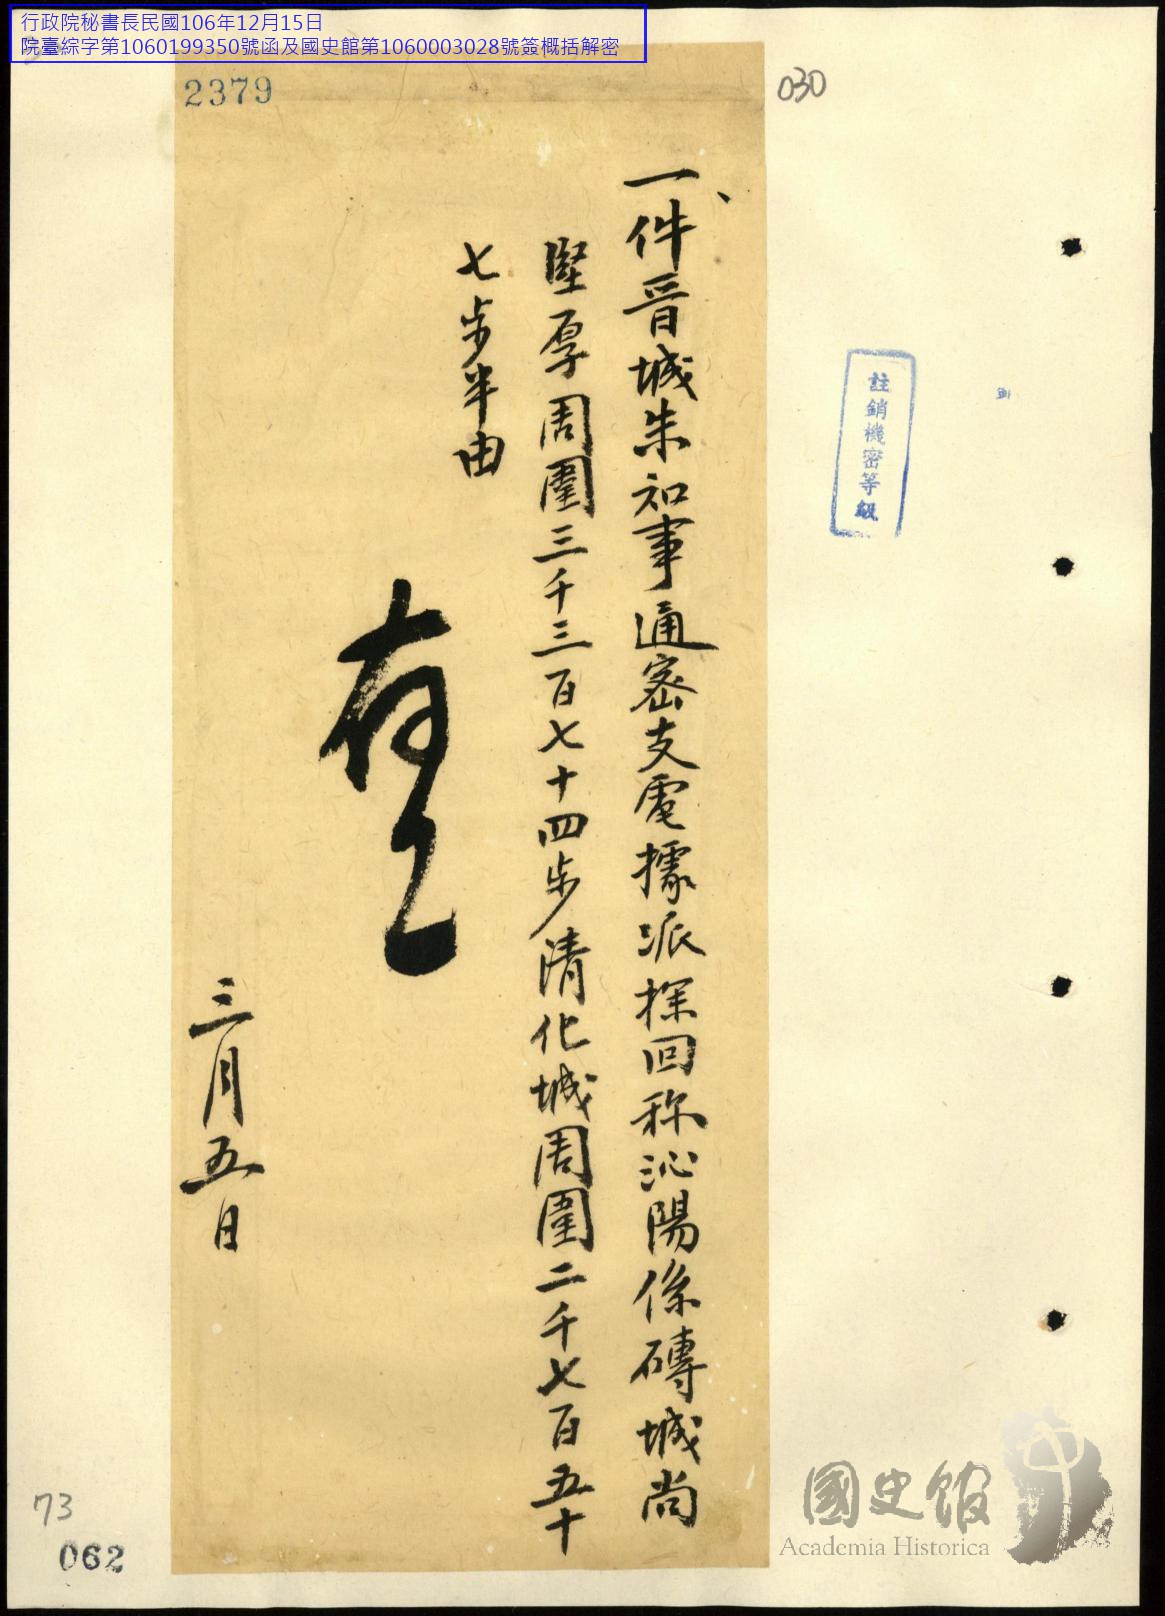 行政院秘書長民國106年12月15日
院臺綜字第1060199350號函及國史館第1060003028號簽概括解密
2379
030
一件晉城朱知事通密支電據派探回称沁陽係磚城尚
堅厚周圍三千三百七十四步清化城周圍二千七百五十
七步半由
存
三月五日
註銷機密等級
73
062
國史館
Academia Historica